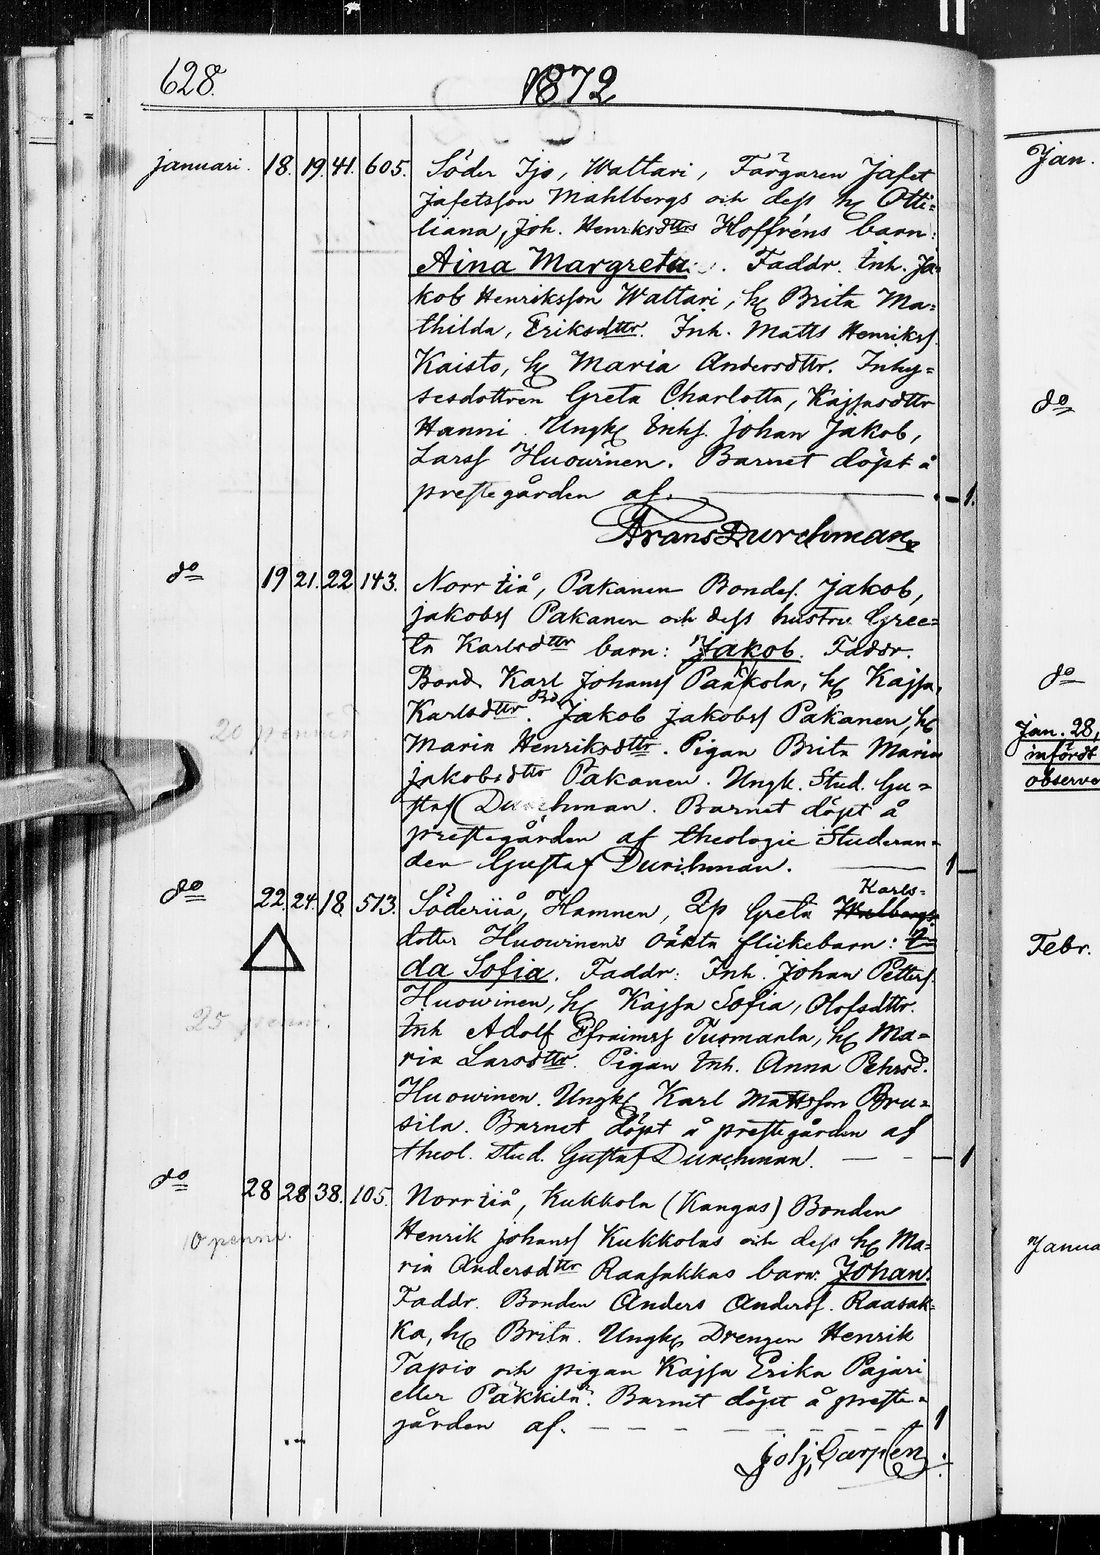 628.
1872
januari. 18. 19. 41. 605. Söder Ijo, Wattari, Färgaren Jafet
Jafetsson Mahlbergs och dess h. Otti=
liana, Joh. Henriksdtts Hoffréns barn:
Aina Margreta. Faddr. Inh. Ja=
kob Henriksson Wattari, h. Brita Ma=
thilda, Eriksdttr. Inh. Matts Henrikss.
Kaisto, h. Maria Andersdttr. Inhy=
sesdottren Greta Charlotta, Kajsasdttr
Hanni. Ungk. Inhs. Johan Jakob,
Larss Huowinen. Barnet döpt å
prestegården af. 1.
Frans Durchman
do 19 21. 22 143. Norr iiå, Pakanen Bondes. Jakob,
jakobss Pakanen och dess hustru Gree=
ta Karlsdttr barn: Jakob. Faddr.
Bond. Karl Johanss Pääkkola, h. Kajsa,
Karlsdttr. Bd. Jakob Jakobss Pakanen, h.
Maria Henriksdttr. Pigan Brita Maria
jakobsdttr Pakanen. Ungk. Stud. Gu=
staf Durchman. Barnet döpt å
prestegården af theologie Studeran=
den Gustaf Durchman. 1
20 penniä
do 22. 24. 18. 513. Söderiiå, Hamnen, Greta Karls=
dotter Huowinens oäkta flickebarn: I=
da Sofia. Faddr: Inh. Johan Petterss.
Huowinen, h. Kajsa Sofia, Olofsdttr.
Inh Adolf Efraimss Tuomaala, h. Ma=
ria Larsdttr. Pigan Inh. Anna Pehrsd.
Huowinen. Ungk. Karl Mattsson Bru=
sila. Barnet döpt å prestegården af
theol. stud. Gustaf Durchman. 1
25 penni.
do 28 28 38. 105. Norr iiå, Kukkola (Kangas) Bonden
10 penni.
Henrik Johanss Kukkolas och dess h. Ma=
ria Andersdttr Raasakkas barn: Johan.
Faddr. Bonden Anders Anderss. Raasak=
ka, h. Brita. Ungk. Drengen Henrik
Tapio och pigan Kajsa Erika Pajari
eller Päkkilä. Barnet döpt å preste=
gården af. 1
Jan.
do
do
Jan. 28,
infördt
observe
Febr.
Janua